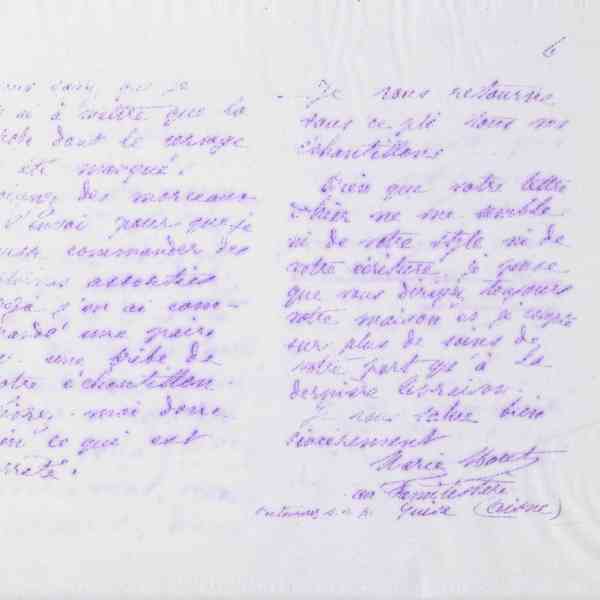 ai à mettre que la
robe dont le corsage
été marqué.
des morceaux
l'envoi pour que je
commander des
assorties
j'en ai com-
mandé une paire
une robe de
votre échantillon.
moi donc
ce qui est
arrêté.
6
Je vous retourne
sous ce pli tous vos
échantillons
Bien que votre lettre
d'hier ne me semble
ni de votre style ni de
votre écriture, je pense
que vous dirigez toujours
votre maison et je compte
sur plus de soins de
votre part qu'à la
dernière livraison.
Je vous salue bien
sincèrement
Marie Moret
au Familistère
Guise (Aisne)